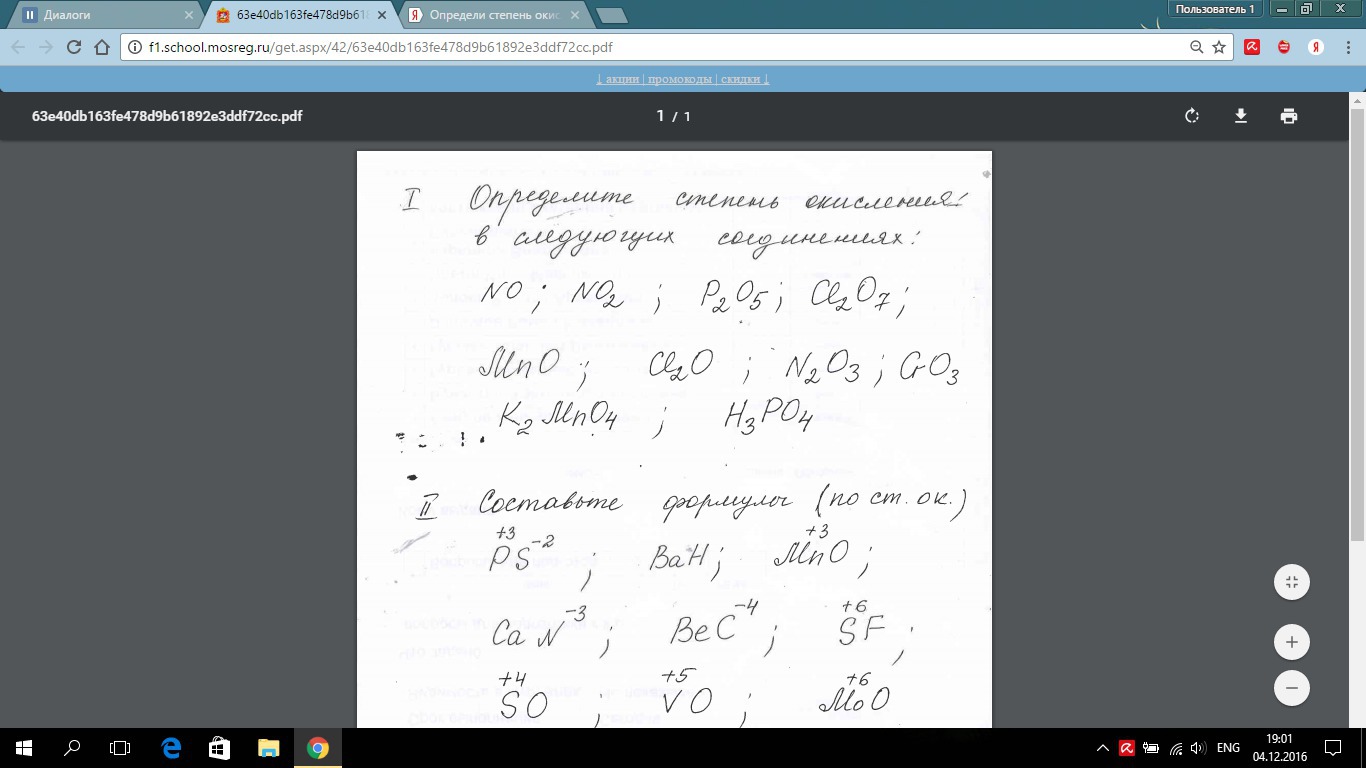 Диалоги
63e40db163fe478d9b618
Определи степень окис
Пользователь 1
f1.school.mosreg.ru/get.aspx/42/63e40db163fe478d9b61892e3ddf72cc.pdf
↓ акции | промокоды | скидки ↓
63e40db163fe478d9b61892e3ddf72cc.pdf
1 / 1
I Определите степень окисления:
в следующих соединениях:
NO ; NO2 ; P2O5 ; Cl2O7 ;
MnO ; Cl2O ; N2O3 ; CrO3
K2MnO4 ; H3PO4
II Составьте формулы (по ст. ок.)
+3 -2 +3
PS ; BaH ; MnO ;
-3 -4 +6
CaN ; BeC ; SF ;
+4 +5 +6
SO ; VO ; MoO
ENG
19:01
04.12.2016